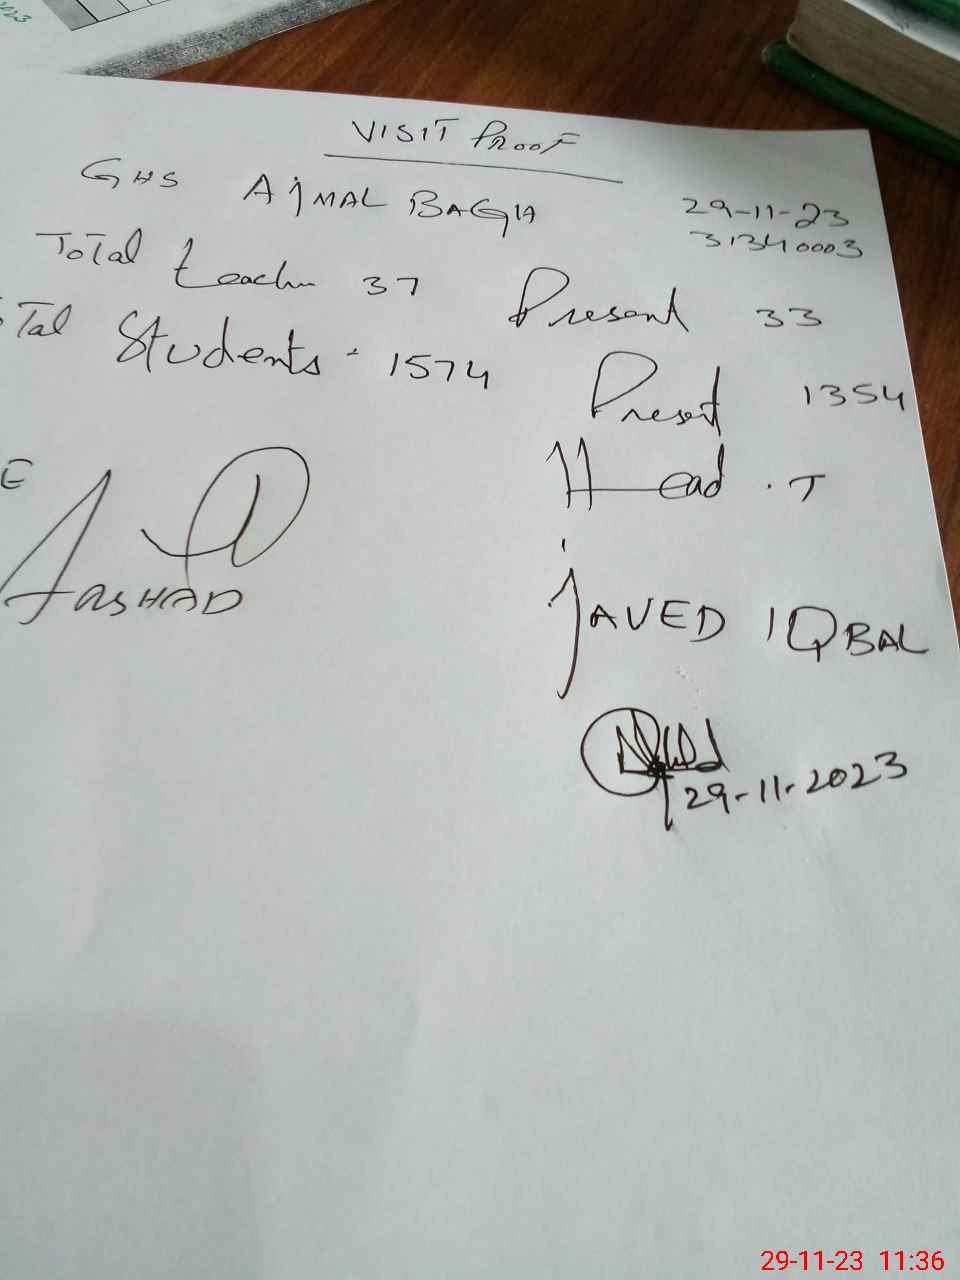 2023
VISIT PROOF
GHS AJMAL BAGH 29-11-23
31340003
Total teacher 37 Present 33
Total Students · 1574 Present 1354
E Head · T
ARSHAD JAVED IQBAL
29-11-2023
29-11-23 11:36